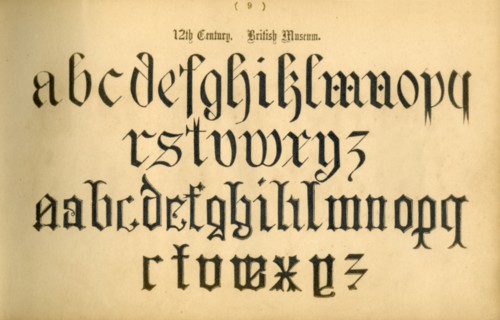 ( 9 )
12th Century. British Museum.
abcdefghiklmnopq
rstuvwxyz
aabcdefghiklmnopq
rstuvwxyz